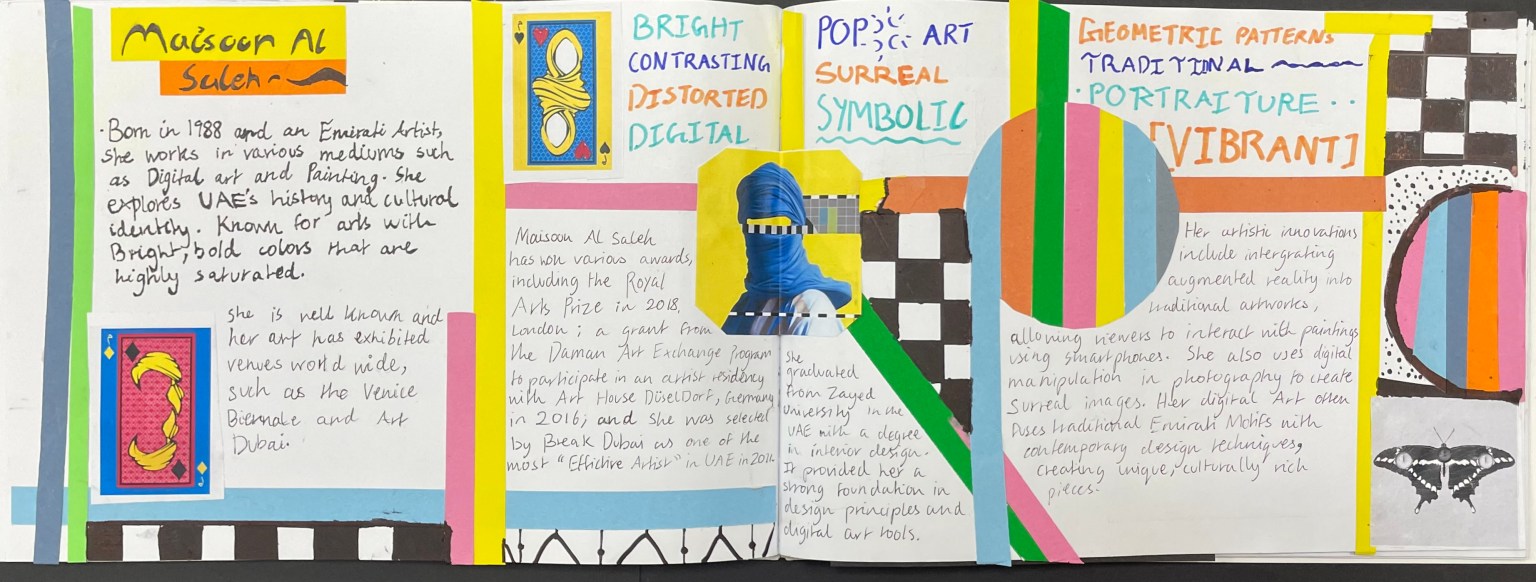 Maisoon Al
Saleh
· Born in 1988 and an Emirati Artist,
she works in various mediums such
as Digital art and Painting. She
explores UAE's history and cultural
identity. Known for arts with
Bright, bold colors that are
highly saturated.
she is well known and
her art has exhibited
venues world wide,
such as the Venice
Biennale and Art
Dubai.
BRIGHT
CONTRASTING
DISTORTED
DIGITAL
Maisoon Al Saleh
has won various awards,
including the Royal
Arts Prize in 2018,
London; a grant from
the Daman Art Exchange Program
to participate in an artist residency
with Art House DüselDorf, Germany
in 2016; and she was selected
by Break Dubai as one of the
most "Effictive Artist" in UAE in
POP ART
SURREAL
SYMBOLIC
She
graduated
from Zayed
University in the
UAE with a degree
in interior design.
It provided her a
strong foundation in
design principles and
digital art tools.
GEOMETRIC PATTERNS
TRADITIONAL
· PORTRAITURE · ·
[VIBRANT]
Her artistic innovations
include intergrating
augmented reality into
traditional artworks,
allowing viewers to interact with paintings
using smartphones. She also uses digital
manipulation in photography to create
Surreal images. Her digital Art often
fuses traditional Emirati Motifs with
contemporary design techniques,
creating unique, culturally rich
pieces.